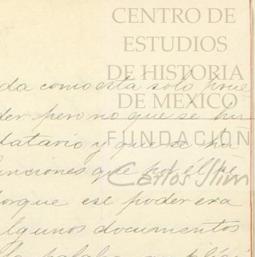 CENTRO DE
ESTUDIOS
DE HISTORIA
DE MÉXICO
FUNDACIÓN
Carlos Slim
da como esta solo pue
der pero no que se hi
datario y que se
unciones que por él se
orque ese poder era
lgunos documentos